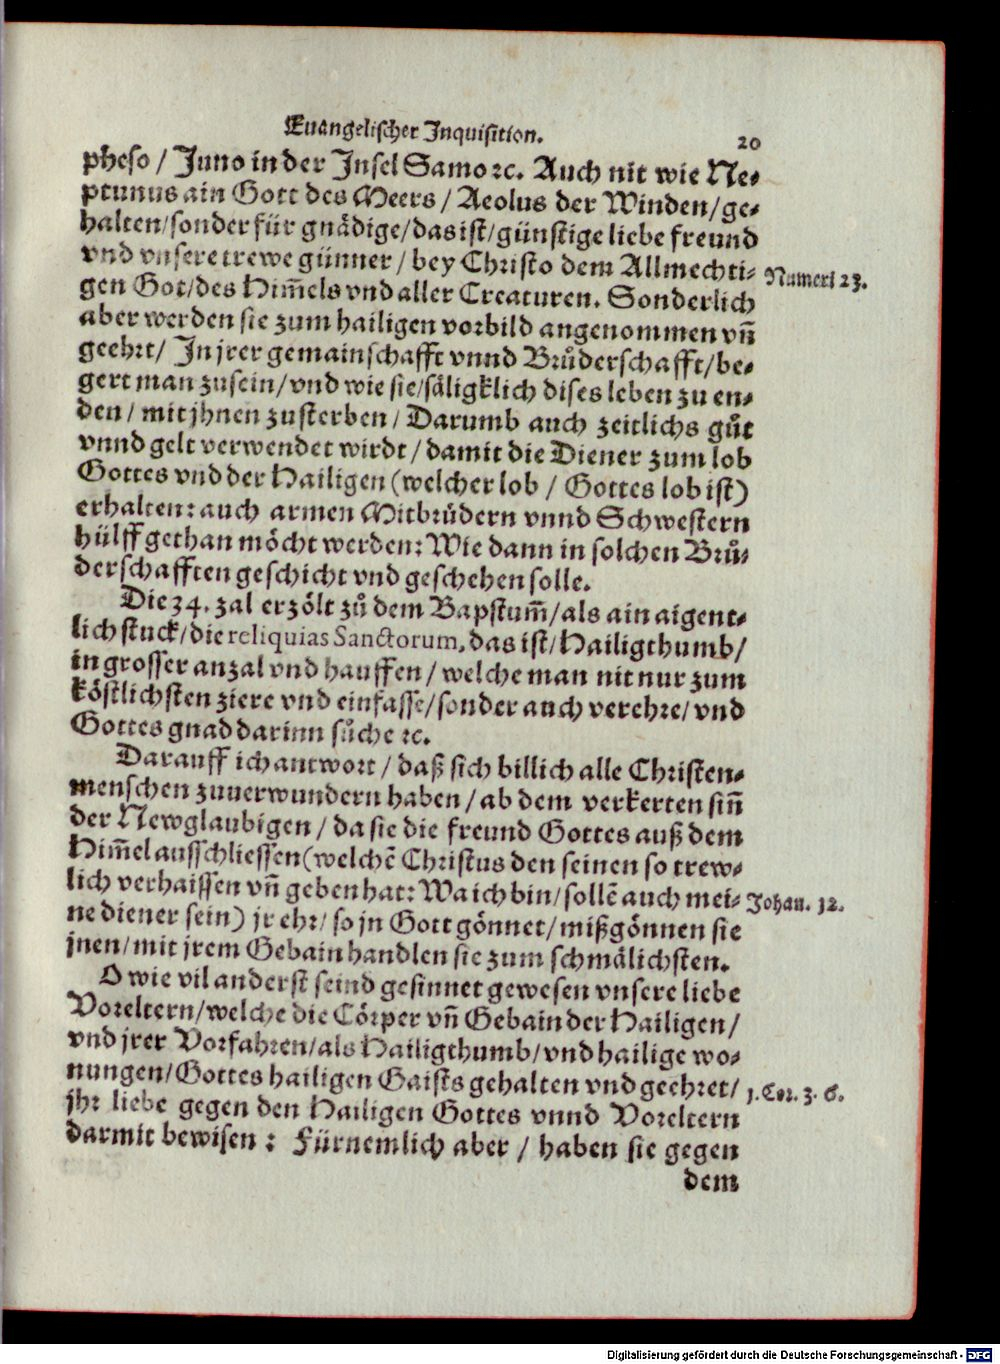 Euangelischer Inquisition.
20
pheso / Juno in der Insel Samo ꝛc. Auch nit wie Ne-
ptunus ain Gott des Meers / Aeolus der Winden/ge-
halten/sonder für gnädige/das ist/günstige liebe freund
vnd vnsere trewe günner / bey Christo dem Allmechti-
Numeri 23.
gen Got/des Him̃els vnd aller Creaturen. Sonderlich
aber werden sie zum hailigen vorbild angenommen vñ
geehrt/ In jrer gemainschafft vnnd Brůderschafft/be-
gert man zusein/vnd wie sie/säligklich dises leben zu en-
den / mit jhnen zusterben / Darumb auch zeitlichs gůt
vnnd gelt verwendet wirdt / damit die Diener zum lob
Gottes vnd der Hailigen (welcher lob / Gottes lob ist)
erhalten: auch armen Mitbrůdern vnnd Schwestern
hülff gethan möcht werden: Wie dann in solchen Brů-
derschafften geschicht vnd geschehen solle.
Die 34. zal erzölt zů dem Bapstum̃/als ain aigent-
lich stuck/die reliquias Sanctorum, das ist/Hailigthumb/
in grosser anzal vnd hauffen / welche man nit nur zum
köstlichsten ziere vnd einfasse/sonder auch verehre/ vnd
Gottes gnad darinn sůche ꝛc.
Darauff ich antwort / daß sich billich alle Christen-
menschen zuuerwundern haben / ab dem verkerten siñ
der Newglaubigen / da sie die freund Gottes auß dem
Him̃el ausschliessen (welchẽ Christus den seinen so trew-
lich verhaissen vñ geben hat: Wa ich bin/sollẽ auch mei-
Johan. 12.
ne diener sein) jr ehr/ so jn Gott gönnet/ mißgönnen sie
jnen/mit jrem Gebain handlen sie zum schmälichsten.
O wie vil anderst seind gesinnet gewesen vnsere liebe
Voreltern/welche die Cörper vñ Gebain der Hailigen/
vnd jrer Vorfahren/als Hailigthumb/vnd hailige wo-
nungen/Gottes hailigen Gaists gehalten vnd geehret/
1. Cor. 3. 6.
jhr liebe gegen den Hailigen Gottes vnnd Voreltern
darmit bewisen : Fürnemlich aber / haben sie gegen
dem
Digitalisierung gefördert durch die Deutsche Forschungsgemeinschaft - DFG